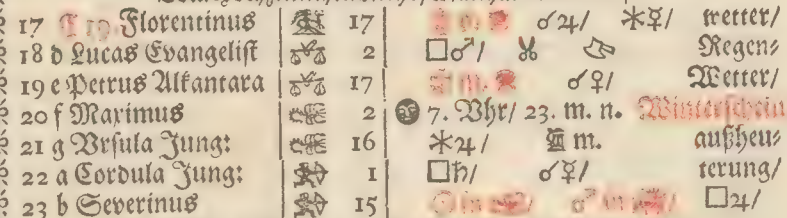 17 Florentinus 17 ☌♃/ ⚹☿/ wetter/
18 d Lucas Evangelist 2 □♂/ Regen⸗
19 e Petrus Alkantara 17 m. ☌♀/ Wetter/
20 f Maximus 2 7. Vhr/ 23. m. n. Winterschein
21 g Vrsula Jung: 16 ⚹♃/ m. außheu⸗
22 a Cordula Jung: 1 □♄/ ☌☿/ terung/
23 b Severinus 15 □♃/